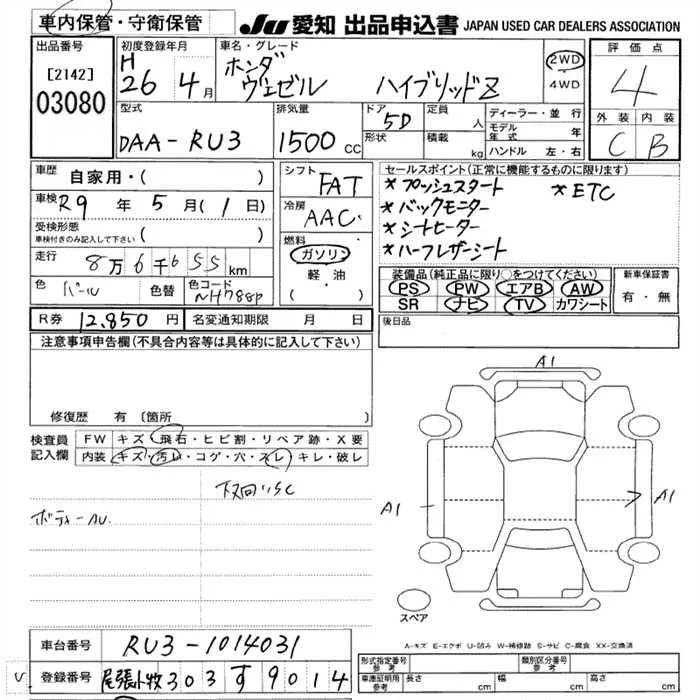 車内保管・守衛保管 JU 愛知 出品申込書 JAPAN USED CAR DEALERS ASSOCIATION
出品番号 初度登録年月 車名・グレード 評価点
[2142] H 26年 4月 ホンダ ヴェゼル ハイブリッドZ 2WD・4WD 4
03080
型式 排気量 ドア 5D 定員 人 ディーラー・並行 外装 内装
DAA-RU3 1500cc 形状 積載 kg モデル年式 年 C B
ハンドル 左・右
車歴 自家用・( ) シフト FAT セールスポイント(正常に機能するものに限ります)
車検 R9年 5月(1日) 冷房 AAC *プッシュスタート *ETC
受検形態 車検付きのみ記入して下さい ( ) *バックモニター
燃料 ガソリン *シートヒーター
走行 8万6千655km 軽・油 *ハーフレザーシート
( ・ )
色 パール 色替 色コード NH788P 装備品(純正品に限り○をつけてください) 新車保証書
PS PW エアB AW 有・無
SR ナビ TV カワシート
R券 12,850円 名変通知期限 月 日 後日品
注意事項申告欄(不具合内容等は具体的に記入して下さい)
修復歴 有(箇所 )
検査員記入欄 FW キズ・飛石・ヒビ割・リペア跡・X要
内装 キズ・汚い・コゲ・穴・スレ・キレ・破レ
下回りSC
ボディーAU
A1
A1
A1
スペア
A-キズ E-エクボ U-凹み W-補修跡 S-サビ C-腐食 XX-交換済
車台番号 RU3-1014031
登録番号 尾張小牧 303 す 9014
型式指定番号 参考 類別区分番号 参考
車庫証明用 参考 長さ cm 幅 cm 高さ cm